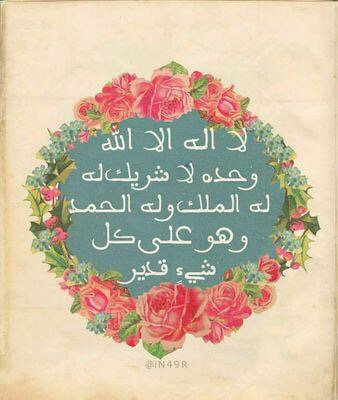 لا اله الا الله
وحده لا شريك له
له الملك وله الحمد
وهو على كل
شيءٍ قدير
@iN49R